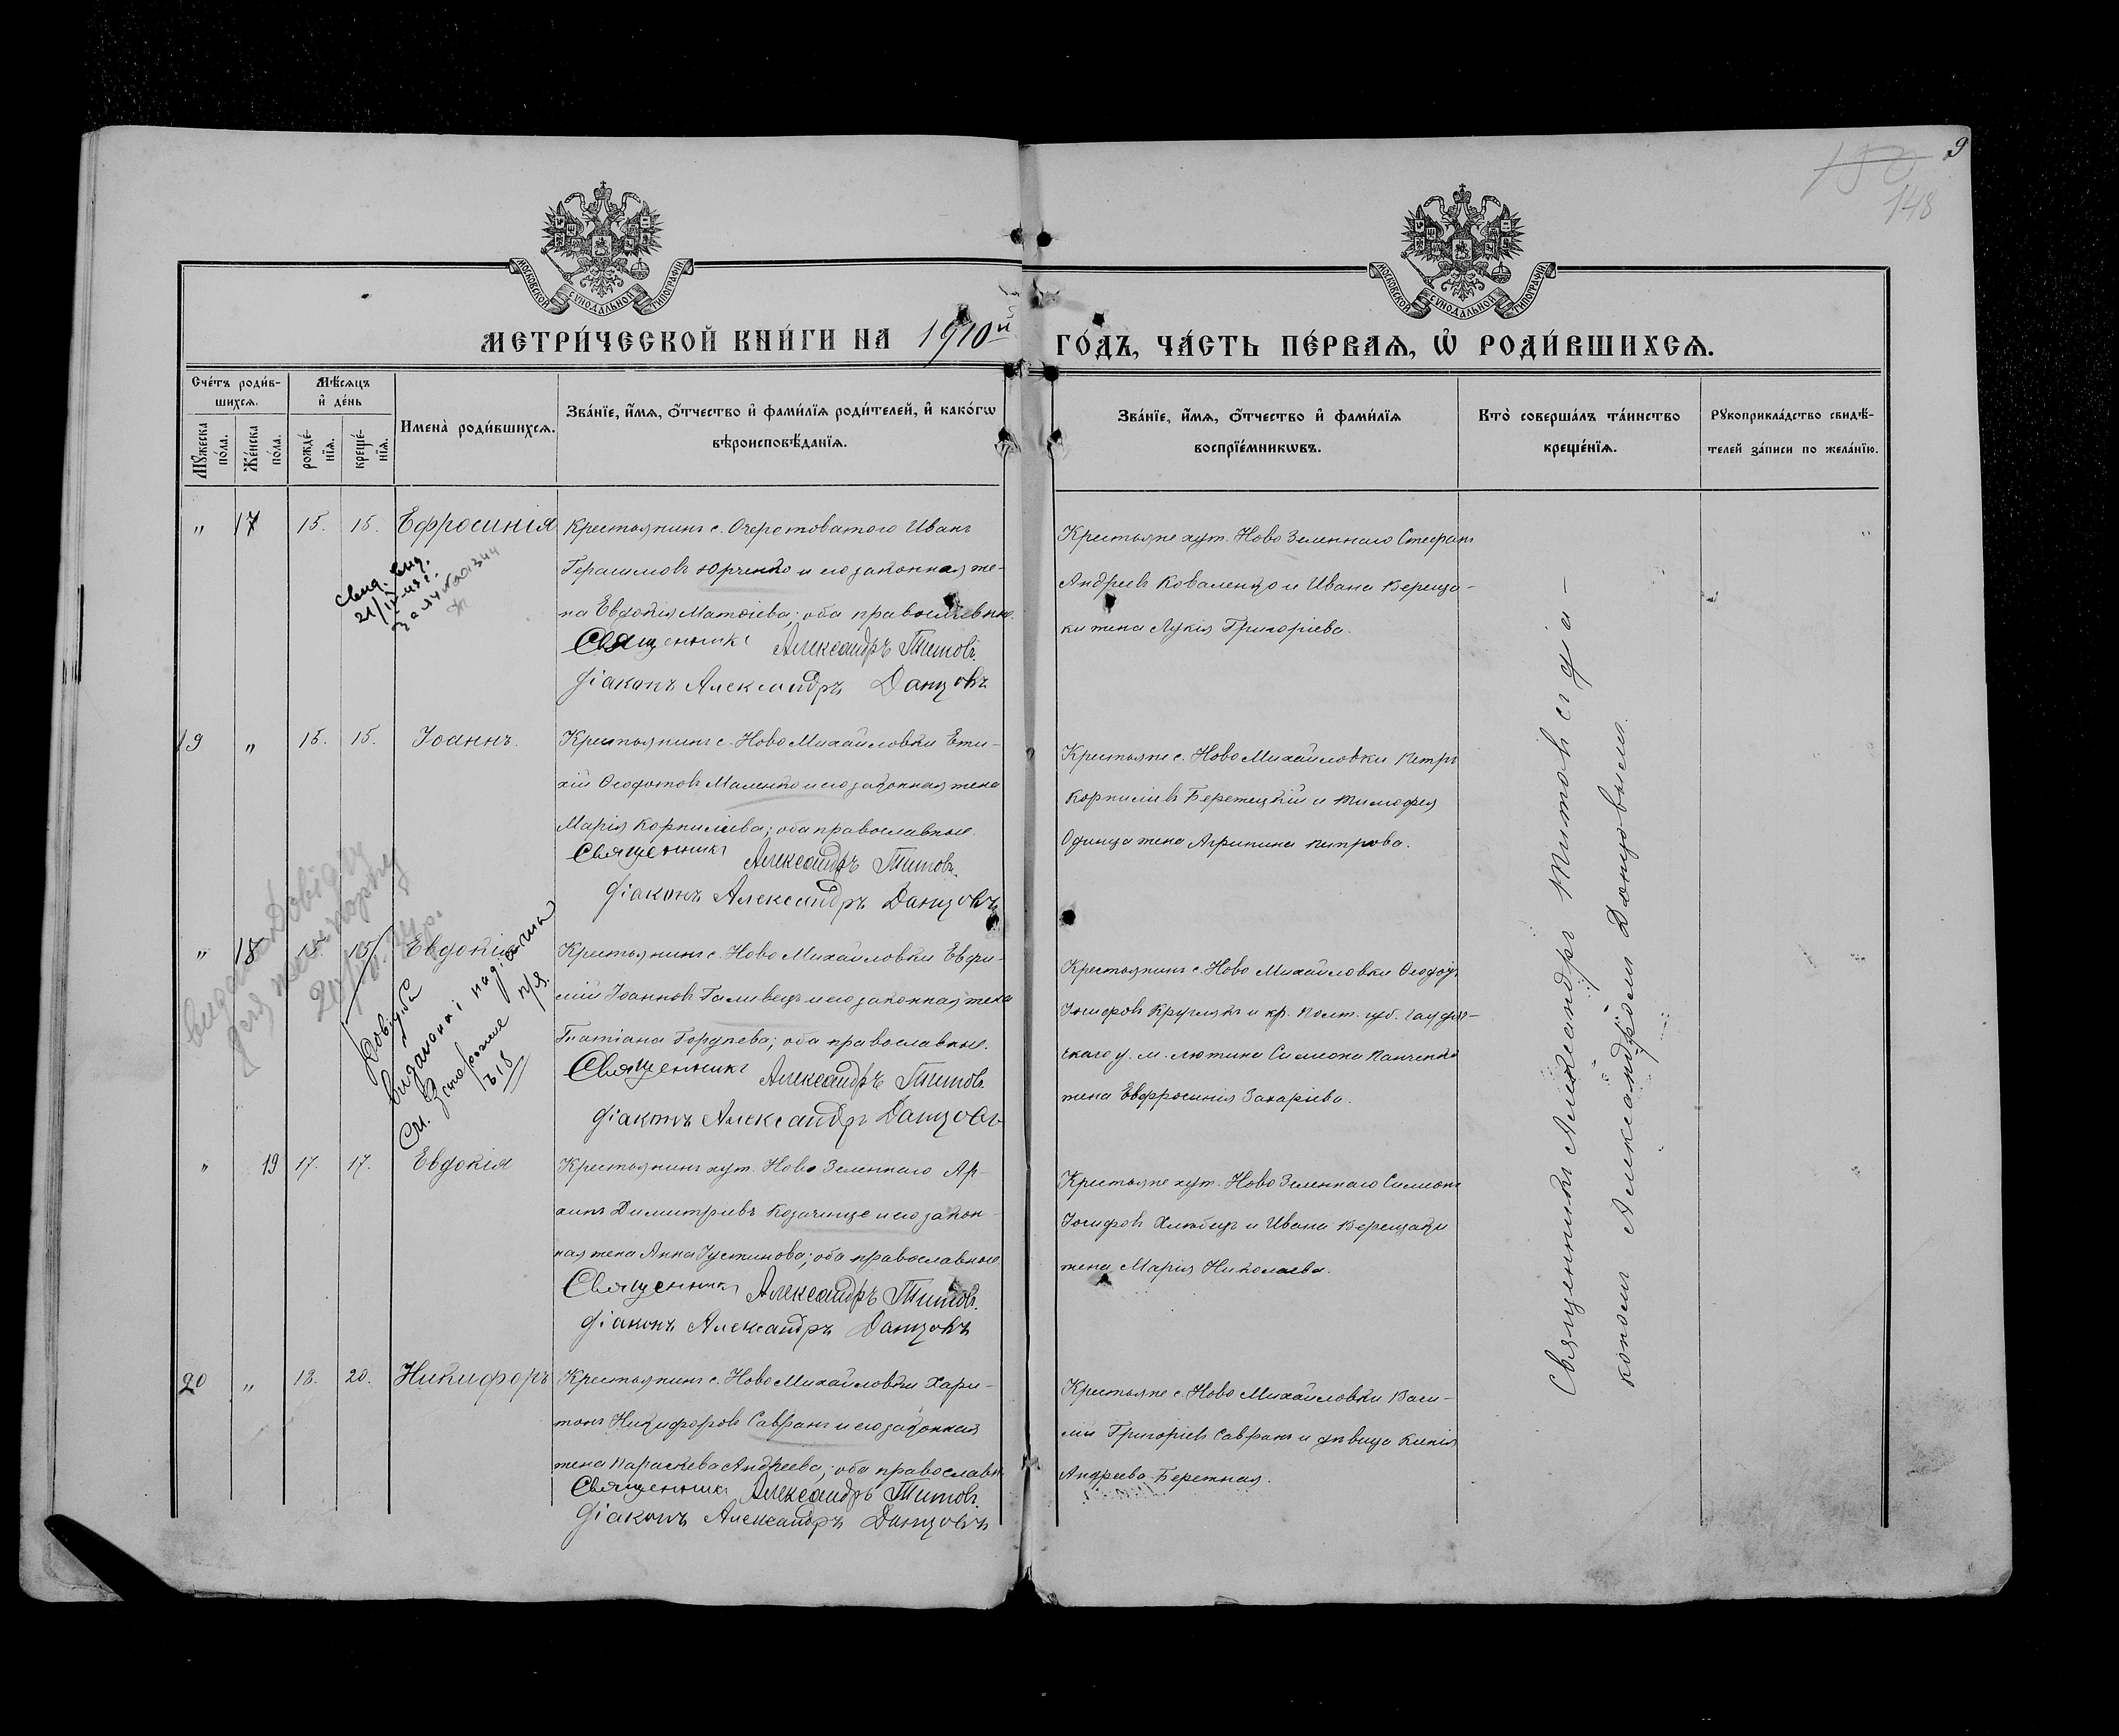 9
150
148
МОСКОВСКОЙ СѴНОДАЛЬНОЙ ТИПОГРАФІИ
МОСКОВСКОЙ СѴНОДАЛЬНОЙ ТИПОГРАФІИ
МЕТРИ́ЧЕСКОЙ КНИ́ГИ НА 1910й
ГО́ДЪ, ЧА́СТЬ ПЕ́РВАѦ, Ѽ РОДИ́ВШИХСѦ.
Сче́тъ роди́в-
шихсѧ.
Мѣ́сѧцъ
и҆ де́нь
Мꙋ́жеска по́ла.
Же́нска по́ла.
рожде́-
нїѧ.
креще́-
нїѧ.
Имена̀ роди́вшихсѧ.
Зва́нїе, и҆́мѧ, ѻ҆́тчество и҆ фами́лїѧ роди́телей, и҆ како́гѡ
вѣроисповѣ́данїѧ.
Зва́нїе, и҆́мѧ, ѻ҆́тчество и҆ фами́лїѧ
воспрїе́мникѡвъ.
Кто̀ соверша́лъ та́инство
креще́нїѧ.
Рꙋкоприкла́дство свидѣ́-
телей за́писи по жела́нїю.
" 17 15. 15. Ефросинія
Крестьянинъ с. Очеретоватого Иванъ
Герасимовъ Юрченко и его законная же-
на Евдокія Матѳіева; оба православные.
Священникъ Александръ Титовъ.
Діаконъ Александръ Данцовъ
Крестьяне хут. Ново Зеленнаго Стефанъ
Андреевъ Коваленко и Ивана Верещa-
ки жена Лукія Григоріева.
19 " 15. 15. Іоаннъ.
Крестьянинъ с. Ново Михайловки Евти-
хій Ѳеодотовъ Маленко и его законная жена
Марія Корниліева; оба православные.
Священникъ Александръ Титовъ.
Діаконъ Александръ Данцовъ
Крестьяне с. Ново Михайловки Петръ
Корниліевъ Бережецкій и Тимофея
Одинца жена Агрипина Петрова.
" 18 15. 15. Евдокія
Крестьянинъ с. Ново Михайловки Евфи-
мій Іоанновъ Галивецъ и его законная жена
Татіана Гордѣева; оба православные.
Священникъ Александръ Титовъ.
Діаконъ Александръ Данцовъ
Крестьянинъ с. Ново Михайловки Ѳеодоръ
Іосифовъ Круглякъ и кр. Полт. губ. Гадяч-
скаго у. м. Лютенки Симеона Панченко
жена Евфросинія Захаріева.
" 19 17. 17. Евдокія
Крестьянинъ хут. Ново Зеленнаго Ар-
хипъ Димитріевъ Козачище и его закон-
ная жена Анна Іустинова; оба православные.
Священникъ Александръ Титовъ.
Діаконъ Александръ Данцовъ
Крестьяне хут. Ново Зеленнаго Симеонъ
Іосифовъ Хлѣбецъ и Ивана Верещаки
жена Марія Николаева.
20 " 18. 20. Никифоръ
Крестьянинъ с. Ново Михайловки Хари-
тонъ Никифоровъ Савранъ и его законная
жена Параскева Андреева; оба православн
Священникъ Александръ Титовъ.
Діаконъ Александръ Данцовъ
Крестьяне с. Ново Михайловки Васи-
лій Григоріевъ Савранъ и дѣвица Ксенія
Андреева Бережная.
Священникъ Александръ Титовъ съ діа-
кономъ Александромъ Данцовымъ.